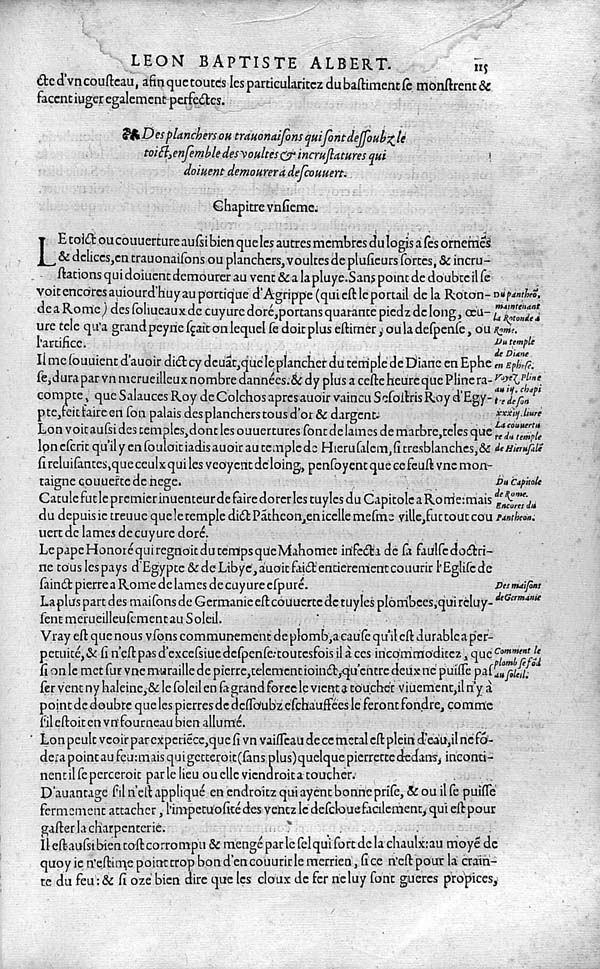 LEON BAPTISTE ALBERT. 115
cte d'vn cousteau, afin que toutes les particularitez du bastiment se monstrent &
facent iuger egalement perfectes.
Des planchers ou trauonaisons qui sont dessoubz le
toict, ensemble des voultes & incrustatures qui
doiuent demourer a descouuert.
Chapitre vnsieme.
LE toict ou couuerture aussi bien que les autres membres du logis a ses ornemēs
& delices, en trauonaisons ou planchers, voultes de plusieurs sortes, & incru-
stations qui doiuent demourer au vent & a la pluye. Sans point de doubte il se
voit encores auiourd'huy au portique d'Agrippe (qui est le portail de la Roton-
de a Rome) des soliueaux de cuyure doré, portans quarante piedz de long, œu-
ure tele qu'a grand peyne sçait on lequel se doit plus estimer, ou la despense, ou
l'artifice.
Du pantheō,
maintenant
la Rotonde a
Rome.
Il me souuient d'auoir dict cy deuāt, que le plancher du temple de Diane en Ephe
se, dura par vn merueilleux nombre dannées. & dy plus a ceste heure que Pline ra-
compte, que Salauces Roy de Colchos apres auoir vaincu Sesostris Roy d'Egy-
pte, feit faire en son palais des planchers tous d'or & dargent.
Du temple
de Diane
en Ephese.
Voyez Pline
au iij. chapi
tre de son
xxxiij. liure
Lon voit aussi des temples, dont les ouuertures sont de lames de marbre, teles que
lon escrit qu'il y en souloit iadis auoir au temple de Hierusalem, si tresblanches, &
si reluisantes, que ceulx qui les veoyent de loing, pensoyent que ce feust vne mon-
taigne couuerte de nege.
La couuertu
re du temple
de Hierusalē
Catule fut le premier inuenteur de faire dorer les tuyles du Capitole a Rome: mais
du depuis ie treuue que le temple dict Pātheon, en icelle mesme ville, fut tout cou
uert de lames de cuyure doré.
Du Capitole
de Rome.
Encores du
Pantheon.
Le pape Honoré qui regnoit du temps que Mahomet infecta de sa faulse doctri-
ne tous les pays d'Egypte & de Libye, auoit faict entierement couurir l'Eglise de
sainct pierre a Rome de lames de cuyure espuré.
La plus part des maisons de Germanie est couuerte de tuyles plombees, qui reluy-
sent merueilleusement au Soleil.
Des maisons
de Germanie
Vray est que nous vsons communement de plomb, a cause qu'il est durable a per-
petuité, & si n'est pas d'excessiue despense: toutesfois il à ces incommoditez, que
si on le met sur vne muraille de pierre, telement ioinct, qu'entre deux ne puisse pas
ser vent ny haleine, & le soleil en sa grand force le vient a toucher viuement, il n'y à
point de doubte que les pierres de dessoubz eschauffées le feront fondre, comme
s'il estoit en vn fourneau bien allumé.
Comment le
plomb se fōd
au soleil.
Lon peult veoir par experiēce, que si vn vaisseau de ce metal est plein d'eau, il ne fō-
dera point au feu: mais qui getteroit (sans plus) quelque pierrette dedans, inconti-
nent il se perceroit par le lieu ou elle viendroit a toucher.
D'auantage s'il n'est appliqué en endroitz qui ayent bonne prise, & ou il se puisse
fermement attacher, l'impetuosité des ventz le descloue facilement, qui est pour
gaster la charpenterie.
Il est aussi bien tost corrompu & mengé par le sel qui sort de la chaulx: au moyē de
quoy ie n'estime point trop bon d'en couurir le merrien, si ce n'est pour la crain-
te du feu: & si oze bien dire que les cloux de fer ne luy sont gueres propices,